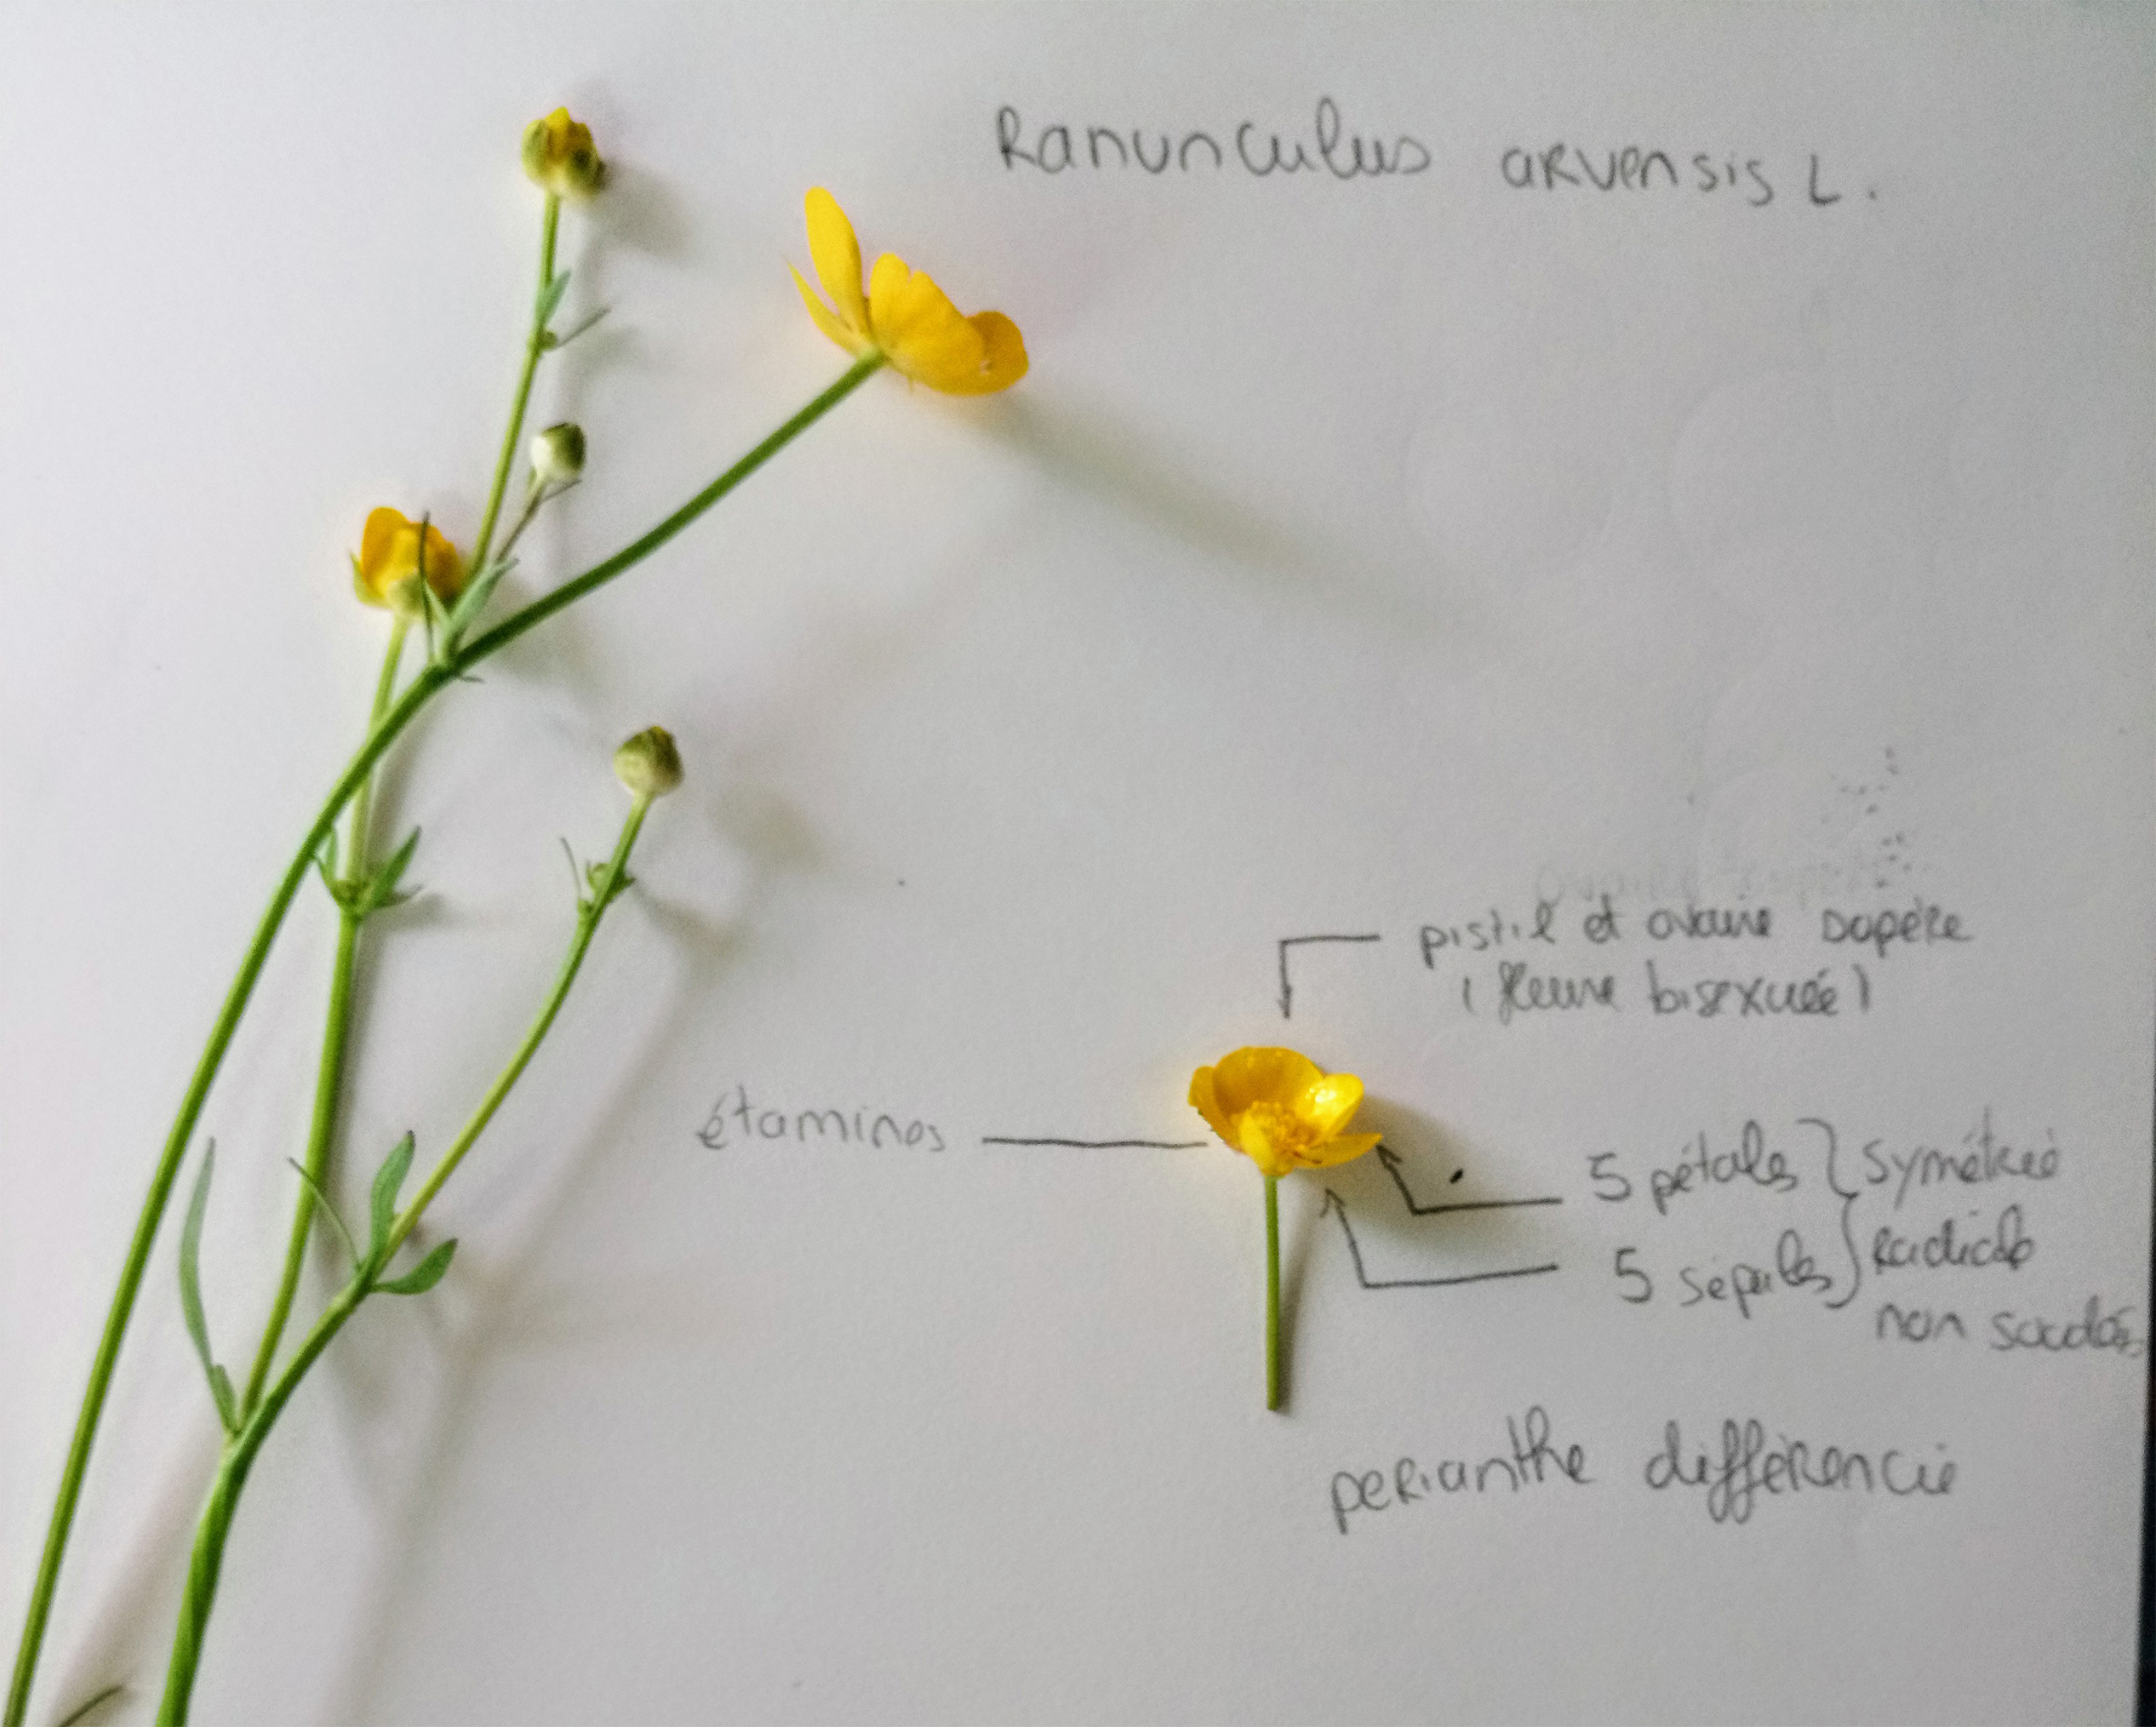 Ranunculus arvensis L.
pistil et ovaire supère
(fleure bisexuée)
étamines
5 pétales } symétrie
5 sépales } Radiale
non soudés
perianthe différencié